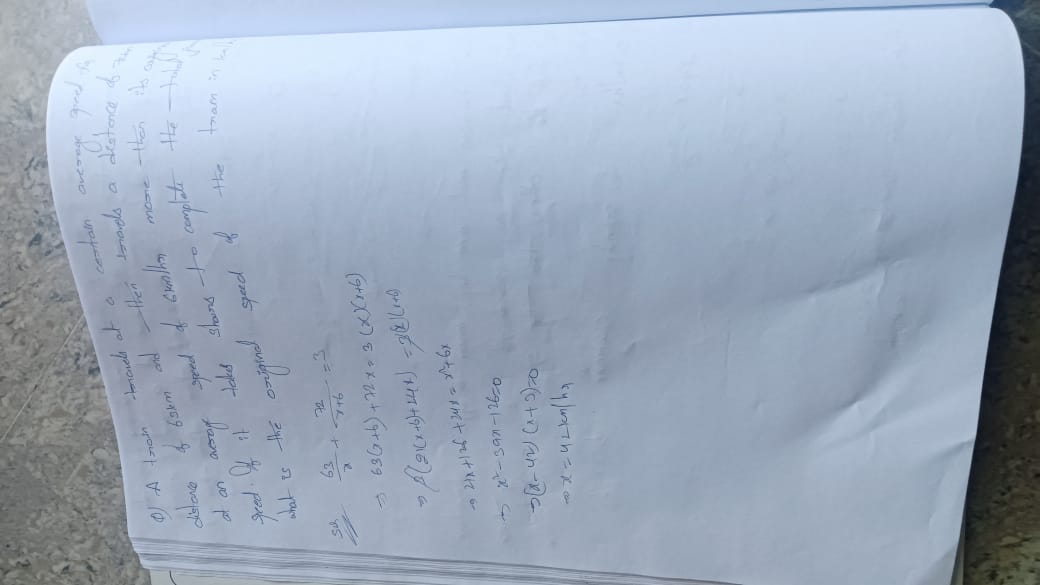 Q) A train travels at a certain average speed for
distance of 63km and then travels a distance of 72km
at an average speed of 6km/hr more than its
speed. If it takes 3hours to complete the total
what is the original speed of the train in
Sol 63/x + 72/x+6 = 3
⇒ 63(x+6)+72x = 3(x)(x+6)
⇒ 3(21(x+6)+24x) = 3(x)(x+6)
⇒ 21x+126+24x = x²+6x
⇒ x²-39x-126=0
⇒ (x-42)(x+3)=0
⇒ x = 42km/hr